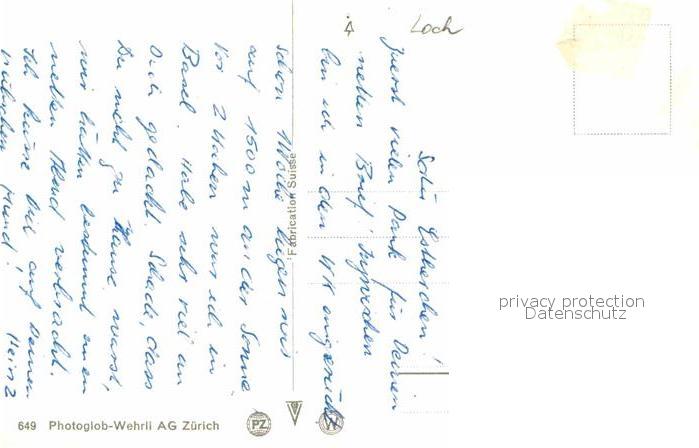 Loch
Salü Estherchen!
Zuerst vielen Dank für Deinen
netten Brief. Inzwischen
bin ich in den WK eingerückt
schon 1 Woche liegen wir
auf 1500 m an der Sonne
Vor 2 Wochen war ich in
Basel. Habe sehr viel an
Dich gedacht. Schade, dass
Du nicht zu Hause warst,
wir hätten bestimmt einen
netten Abend verbracht.
Ich küsse Dich auf Deinen
hübschen Mund!
Heinz
Fabrication Suisse
privacy protection
Datenschutz
649 Photoglob-Wehrli AG Zürich
PZ
W